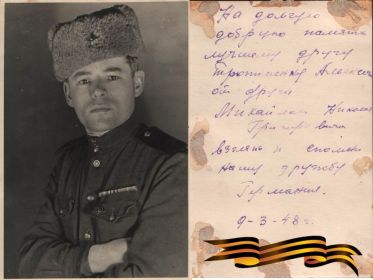 На долгую
добрую память
лучшему другу
Алексею
от друга
Михайлюк Никола
Григорьевич
взглянь и спомни
нашу дружбу
Германия.
9-3-48 г.